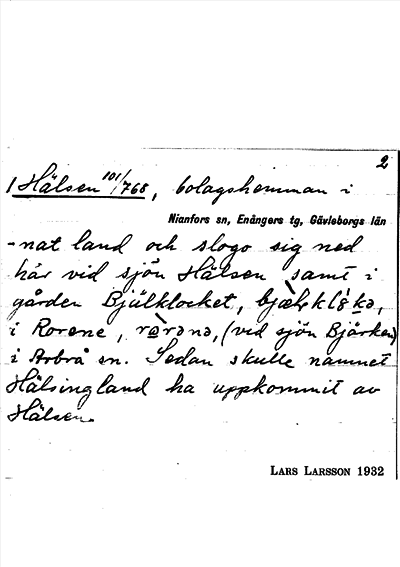 2
1 Hälsen 101/768, bolagshemman i
Nianfors sn, Enångers tg, Gävleborgs län
-nat land och slogo sig ned
här vid sjön Hälsen samt i
gården Bjülklocket,
i Rorene, (vid sjön Bjärken)
i Arbrå sn. Sedan skulle namnet
Hälsingland ha uppkommit av
Hälsen.
LARS LARSSON 1932